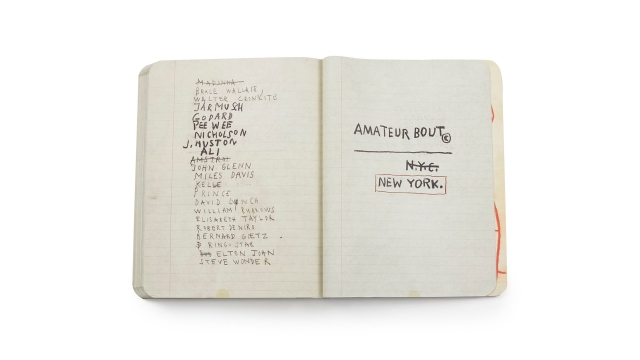 MADINNA
BRUCE WALLAIR,
WALTER CRINKITE
JARMUSH
GODARD
PEE WEE
NICHOLSON
J. HUSTON
ALI
AMSTRAI
JOHN GLENN
MILES DAVIS
KELLE
PRINCE
DAVID LYNCH
WILLIAM BURROWS
ELISABETH TAYLOR
ROBERT DENIRO
BERNARD GOETZ .
RINGO STAR
ELTON JOHN
STEVE WONDER
AMATEUR BOUT©
N.Y.C.
NEW YORK.